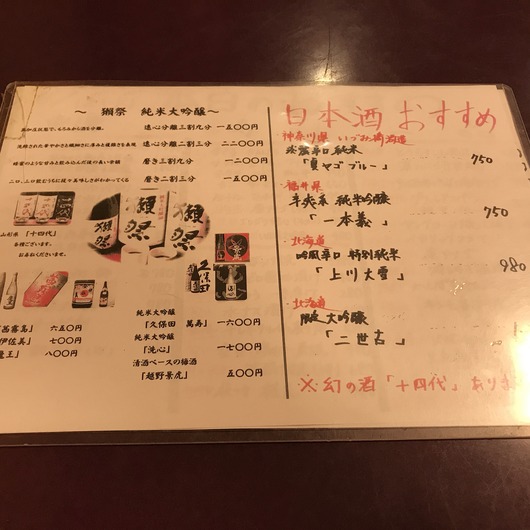 ～ 獺祭 純米大吟醸～
遠心分離三割九分 一五〇〇円
遠心分離二割三分 二二〇〇円
磨き三割九分 一二〇〇円
磨き二割三分 一五〇〇円
山形県「十四代」
各種ございます。
お尋ねくださいませ。
獺祭
「茜霧島」 六五〇円
伊佐美」 七〇〇円
魔王」 八〇〇円
純米大吟醸
「久保田 萬寿」 一六〇〇円
純米大吟醸
「洗心」 一七〇〇円
清酒ベースの梅酒
「越野景虎」 五〇〇円
日本酒 おすすめ
神奈川県
辛口 純米
「真ヤゴブルー」 750
福井県
辛爽系 純米吟醸
「一本義」 750
北海道
吟風辛口 特別純米
「上川大雪」 980
北海道
限定 大吟醸
「二世古」
※幻の酒「十四代」あり